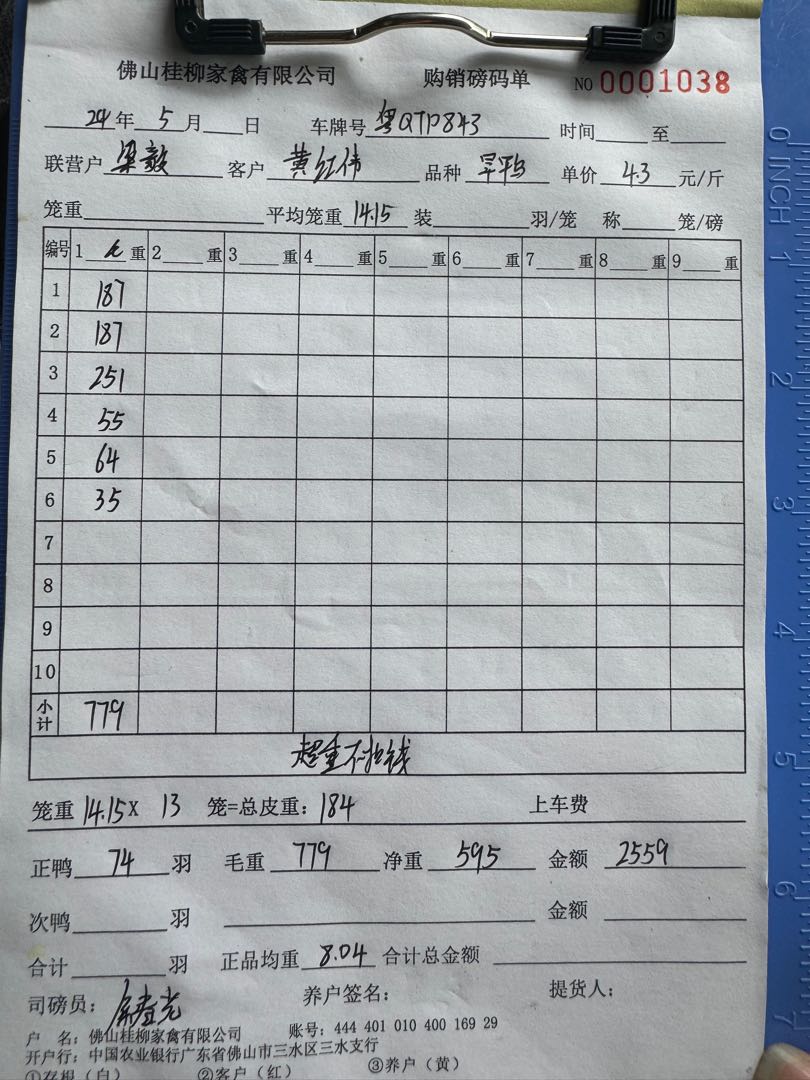 佛山桂柳家禽有限公司 购销磅码单 NO 0001038
24年 5月 日 车牌号 粤QTP843 时间 至
联营户 梁毅 客户 黄红伟 品种 旱鸭 单价 4.3 元/斤
笼重 平均笼重 14.15 装 羽/笼 称 笼/磅
编号 1 重 2 重 3 重 4 重 5 重 6 重 7 重 8 重 9 重
1 187
2 187
3 251
4 55
5 64
6 35
7
8
9
10
小计 779
超重不扣钱
笼重 14.15X 13 笼=总皮重: 184 上车费
正鸭 74 羽 毛重 779 净重 595 金额 2559
次鸭 羽 金额
合计 羽 正品均重 8.04 合计总金额
司磅员: 养户签名: 提货人:
户 名: 佛山桂柳家禽有限公司 账号: 444 401 010 400 169 29
开户行: 中国农业银行广东省佛山市三水区三水支行
①存根(白) ②客户(红) ③养户(黄)
0 INCH 1 2 3 4 5 6 7